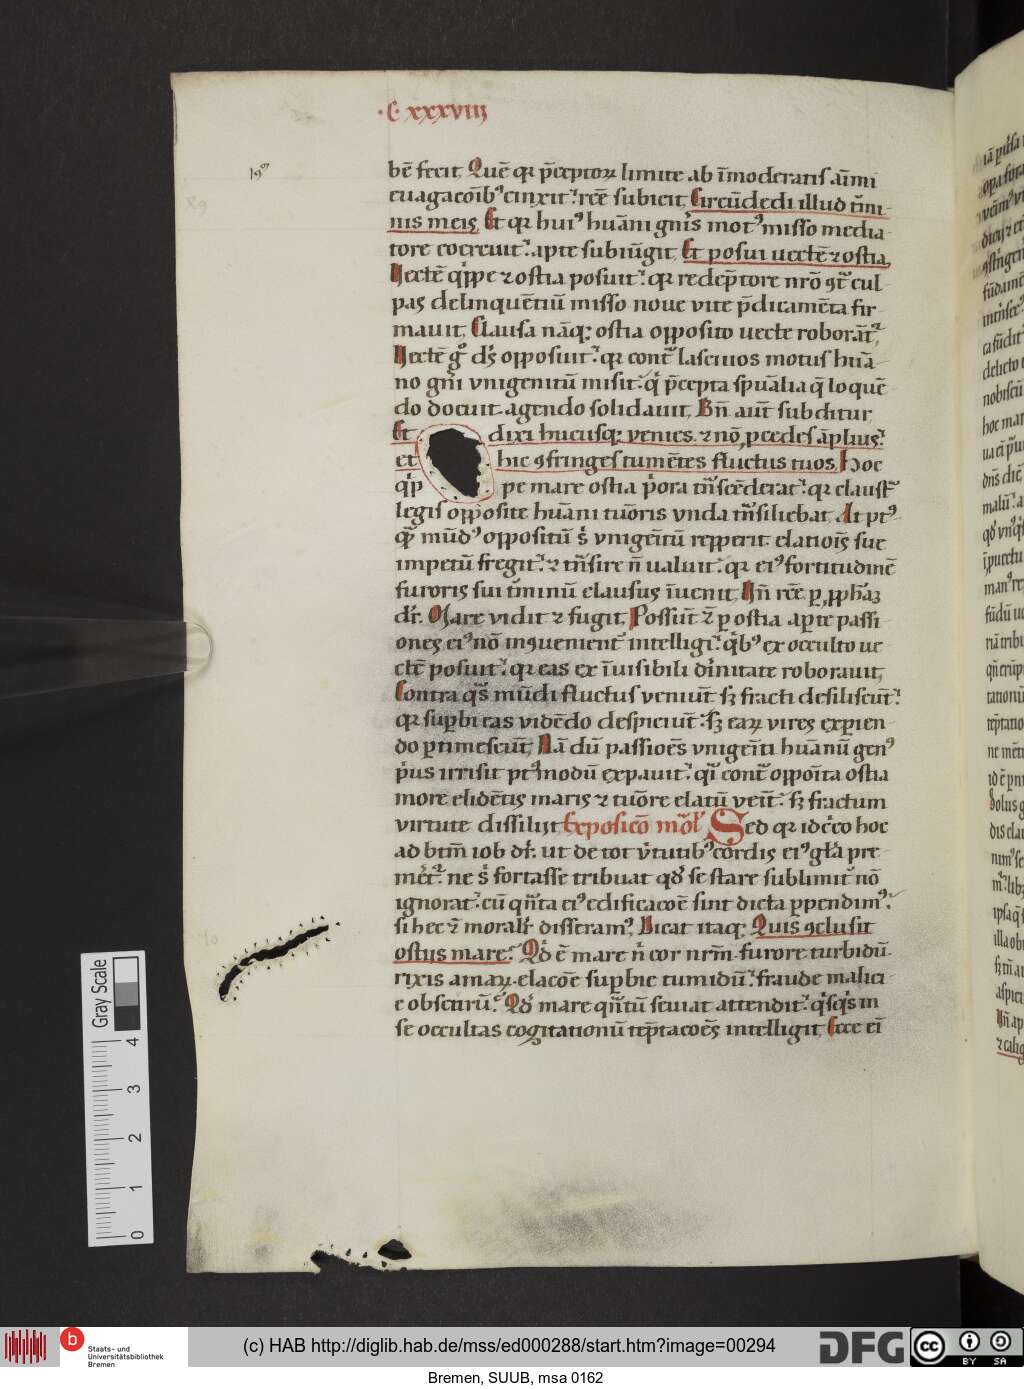 ·C· xxxviij
bē fecit. Quē qr p̄ceptoꝝ limite ab īmoderatis aīmi
euagacoīb⁹ cinxit. rcē subicit. Circūdedi illud t̄mi
nis meis. Et qr hui⁹ huāni gn̄is mot⁹ misso media
tore cocreuit. apte subiūgit. Et posui uectē ⁊ ostia.
Vectē qͥppe ⁊ ostia posuit. qr redēptore nr̄o ꝯt̄ cul
pas delinquētiū misso noue vite p̄dicamēta fir
mauit. Clausa nāqꝫ ostia opposito uecte roborāt̄.
Vectē gͦ dn̄s opposuit. qr cont̄ lasciuos motus huā
no gn̄i vnigenitū misit. qͥ p̄cepta spūalia q̄ loquē
do docuit. agendo solidauit. Bn̄ aut̄ subditur.
Et dixi hucusqꝫ venies. ⁊ nō ꝓcedes āplius.
et hic ꝯfringes tumētes fluctus tuos. Hoc
qͥp pe mare ostia p̄ora tn̄scēderat. qr claust̄
legis opposite huāni tuōris vnda tn̄siliebat. At pt⁹
qͣꝫ mūd⁹ oppositū s̄ vnigenitū repperit. elatiois̄ sue
impetū fregit. ⁊ tn̄sire n̄ ualuit. qr ei⁹ fortitudinē
furoris sui t̄minū clausus īuenit. Vn̄ rcē p ꝓpham
dr̄. Mare vidit ⁊ fugit. Possūt ⁊ p ostia apte passi
ones ei⁹ nō inꝯuenient̄ intelligi. qͥb⁹ ex occulto ue
ctē posuit. qr eas ex īuisibili diuinitate roborauit.
Contra qͣs mūdi fluctus veniūt. sꝫ fracti desiliscūt.
qr supbi eas vidēdo despiciūt. sꝫ eaꝝ vires expien
do ptimescūt. Nā dū passiōes vnigeīti huānū gen⁹
p̄us irrisit ptmodū expauit. qͥ cont̄ oppoīta ostia
more elidētis maris ⁊ tuōre elatū veit̄. sꝫ fractum
virtute dissilijt Exposicō mͦol̄ Sed qr idcͥco hoc
ad btm̄ iob dr̄. ut de tot v̄tutib⁹ cordis ei⁹ gl̄a pre
met̄. ne s̄ fortasse tribuat qd̄ se stare sublimit̄ nō
ignorat. cū qn̄ta ei⁹ edificacoē sint dicta ppendim⁹.
si hec ⁊ moral̄r disseram⁹. Dicat itaqꝫ Quis ꝯclusit
ostijs mare. Qd̄ ē mare n̄ cor nr̄m. furore turbidū.
rixis amaꝝ. elacoē supbie tumidū. fraude malici
e obscurū. Qd̄ mare qn̄tū seuiat attendit. qͥsqͥs in
se occultas cogitationū tēptacoēs intelligit. Ecce eī
Gray Scale
4
3
2
1
0
b
Staats- und
Universitätsbibliothek
Bremen
(c) HAB http://diglib.hab.de/mss/ed000288/start.htm?image=00294
DFG
cc
BY SA
Bremen, SUUB, msa 0162